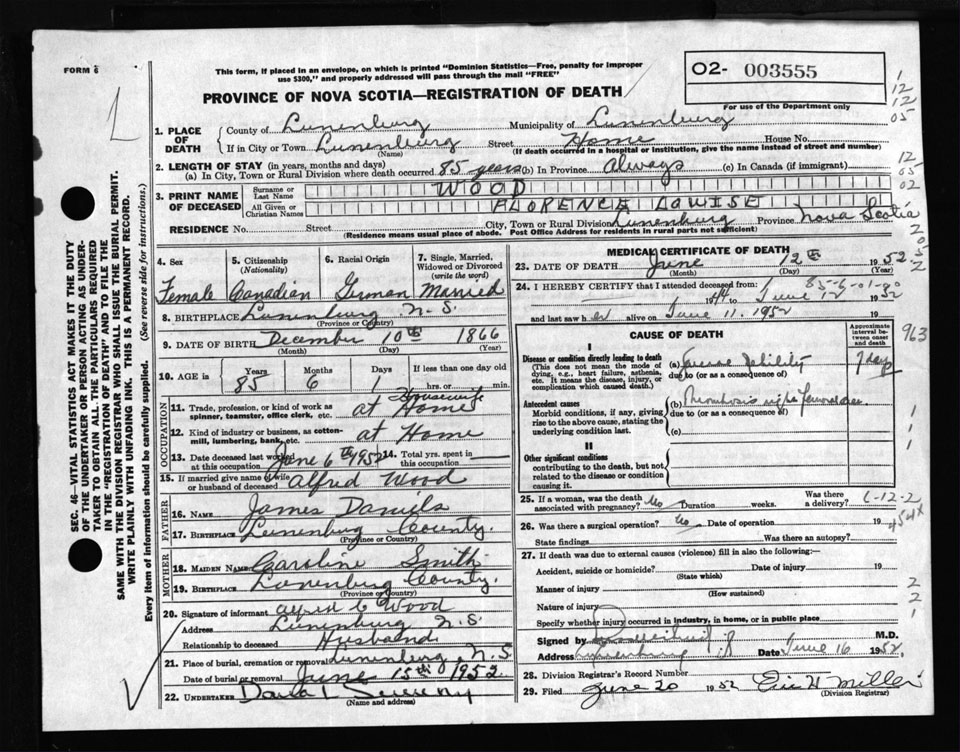 FORM 6
This form, if placed in an envelope, on which is printed "Dominion Statistics—Free, penalty for improper
use $300," and properly addressed will pass through the mail "FREE"
O2- 003555
For use of the Department only
PROVINCE OF NOVA SCOTIA—REGISTRATION OF DEATH
12
12
05
12
05
02
1. PLACE OF DEATH
County of Lunenburg Municipality of Lunenburg
If in City or Town Lunenburg Street Home House No.
(Name) (If death occurred in a hospital or institution, give the name instead of street and number)
2. LENGTH OF STAY (in years, months and days)
(a) In City, Town or Rural Division where death occurred 85 years (b) In Province Always (c) In Canada (if immigrant)
3. PRINT NAME OF DECEASED
Surname or Last Name WOOD
All Given or Christian Names FLORENCE LOUISE
RESIDENCE No. Street City, Town or Rural Division Lunenburg Province Nova Scotia
(Residence means usual place of abode. Post Office Address for residents in rural parts not sufficient)
4. Sex Female
5. Citizenship (Nationality) Canadian
6. Racial Origin German
7. Single, Married, Widowed or Divorced (write the word) Married
8. BIRTHPLACE Lunenburg N.S.
(Province or Country)
9. DATE OF BIRTH December 10th 1866
(Month) (Day) (Year)
10. AGE is Years 85 Months 6 Days 1 If less than one day old
hrs. or min.
OCCUPATION
11. Trade, profession, or kind of work as spinner, teamster, office clerk, etc. Housewife at Home
12. Kind of industry or business, as cotton-mill, lumbering, bank, etc. at Home
13. Date deceased last worked at this occupation June 6th 1952 14. Total yrs. spent in this occupation
15. If married give name of wife or husband of deceased Alfred Wood
FATHER
16. NAME James Daniels
17. BIRTHPLACE Lunenburg County.
(Province or Country)
MOTHER
18. MAIDEN NAME Caroline Smith
19. BIRTHPLACE Lunenburg County.
(Province or Country)
20. Signature of informant Alfred C Wood
Address Lunenburg N.S.
Relationship to deceased Husband
21. Place of burial, cremation or removal Lunenburg N.S.
Date of burial or removal June 15th 1952
22. UNDERTAKER
(Name and address)
MEDICAL CERTIFICATE OF DEATH
23. DATE OF DEATH June 12th 1952
(Month) (Day) (Year)
24. I HEREBY CERTIFY that I attended deceased from:
June 12 1952
and last saw her alive on June 11, 1952 19
CAUSE OF DEATH
Approximate interval between onset and death
963
I
Disease or condition directly leading to death
(This does not mean the mode of dying, e.g., heart failure, asthenia, etc. It means the disease, injury, or complication which caused death.)
(a) debility 7 days
due to (or as a consequence of)
Antecedent causes
Morbid conditions, if any, giving rise to the above cause, stating the underlying condition last.
(b) Thrombosis right femoral
due to (or as a consequence of)
(c)
II
Other significant conditions
contributing to the death, but not related to the disease or condition causing it.
25. If a woman, was the death associated with pregnancy? No Duration weeks. Was there a delivery?
6-12-2
454x
26. Was there a surgical operation? No Date of operation 19
State findings Was there an autopsy?
27. If death was due to external causes (violence) fill in also the following:—
Accident, suicide or homicide? Date of injury 19
(State which)
Manner of injury
(How sustained)
Nature of injury
Specify whether injury occurred in industry, in home, or in public place
2
2
1
Signed by M.D.
Address Date June 16 1952
28. Division Registrar's Record Number
29. Filed June 20 1952 Eric H Miller
(Division Registrar)
SEC. 46—VITAL STATISTICS ACT MAKES IT THE DUTY
OF THE UNDERTAKER OR PERSON ACTING AS UNDER-
TAKER TO OBTAIN ALL THE PARTICULARS REQUIRED
IN THE "REGISTRATION OF DEATH" AND TO FILE THE
SAME WITH THE DIVISION REGISTRAR WHO SHALL ISSUE THE BURIAL PERMIT.
WRITE PLAINLY WITH UNFADING INK. THIS IS A PERMANENT RECORD.
Every item of information should be carefully supplied. (See reverse side for instructions.)